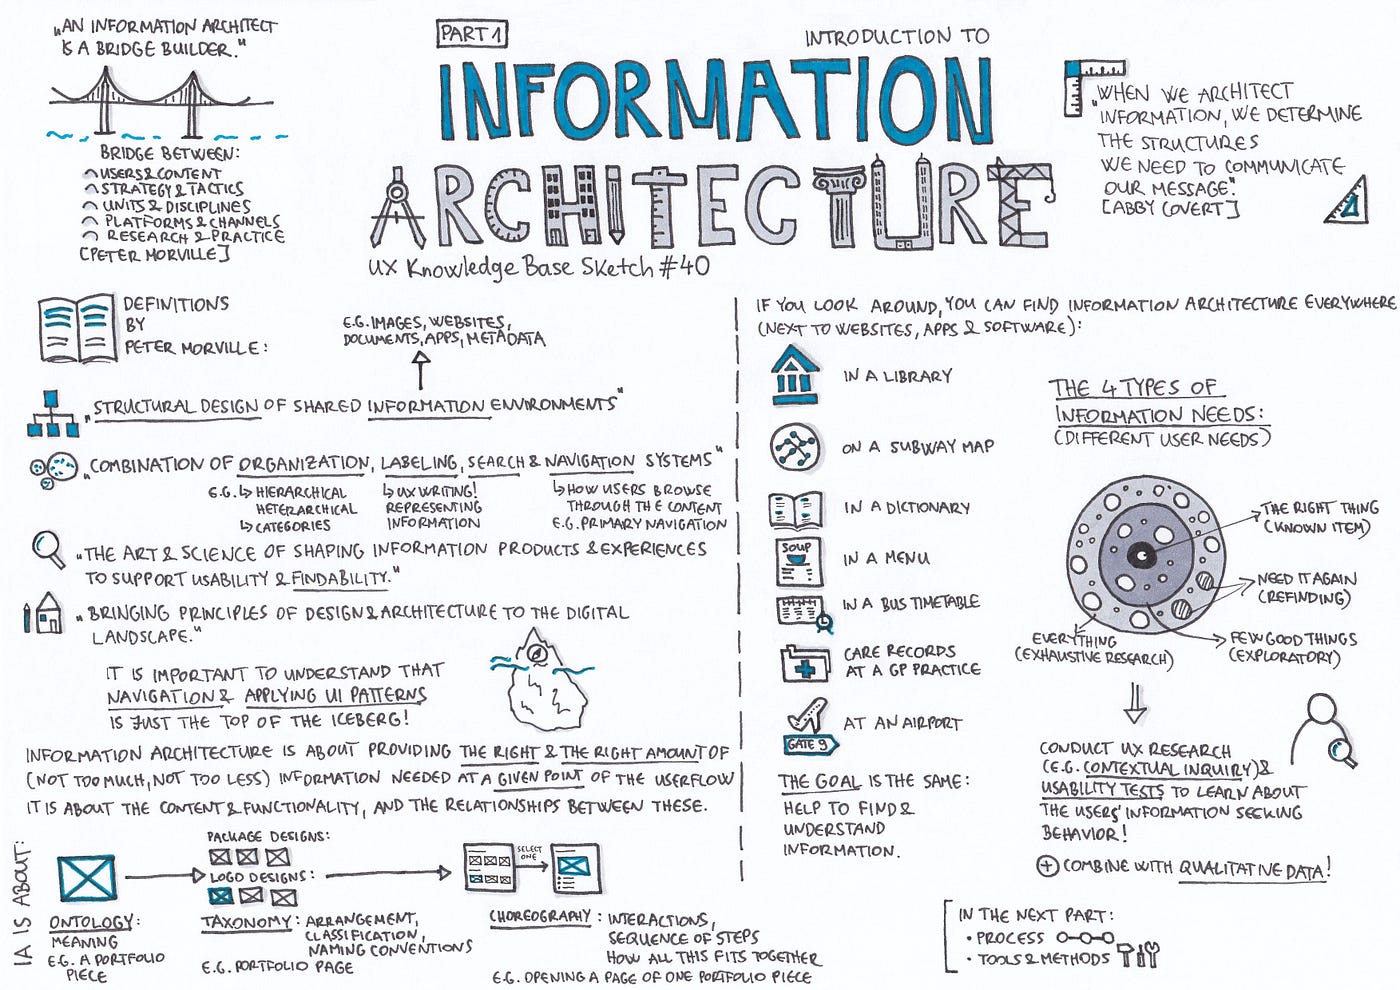 „AN INFORMATION ARCHITECT
IS A BRIDGE BUILDER."
BRIDGE BETWEEN:
USERS & CONTENT
STRATEGY & TACTICS
UNITS & DISCIPLINES
PLATFORMS & CHANNELS
RESEARCH & PRACTICE
[PETER MORVILLE]
PART 1
INTRODUCTION TO
INFORMATION
ARCHITECTURE
UX Knowledge Base Sketch #40
„WHEN WE ARCHITECT
INFORMATION, WE DETERMINE
THE STRUCTURES
WE NEED TO COMMUNICATE
OUR MESSAGE"
[ABBY COVERT]
DEFINITIONS
BY
PETER MORVILLE:
E.G. IMAGES, WEBSITES,
DOCUMENTS, APPS, METADATA
„STRUCTURAL DESIGN OF SHARED INFORMATION ENVIRONMENTS"
„COMBINATION OF ORGANIZATION, LABELING, SEARCH & NAVIGATION SYSTEMS"
E.G. ↳ HIERARCHICAL
HETERARCHICAL
↳ CATEGORIES
↳ UX WRITING!
REPRESENTING
INFORMATION
↳ HOW USERS BROWSE
THROUGH THE CONTENT
E.G. PRIMARY NAVIGATION
„THE ART & SCIENCE OF SHAPING INFORMATION PRODUCTS & EXPERIENCES
TO SUPPORT USABILITY & FINDABILITY."
„BRINGING PRINCIPLES OF DESIGN & ARCHITECTURE TO THE DIGITAL
LANDSCAPE."
IT IS IMPORTANT TO UNDERSTAND THAT
NAVIGATION & APPLYING UI PATTERNS
IS JUST THE TOP OF THE ICEBERG!
INFORMATION ARCHITECTURE IS ABOUT PROVIDING THE RIGHT & THE RIGHT AMOUNT OF
(NOT TOO MUCH, NOT TOO LESS) INFORMATION NEEDED AT A GIVEN POINT OF THE USERFLOW
IT IS ABOUT THE CONTENT & FUNCTIONALITY, AND THE RELATIONSHIPS BETWEEN THESE.
IA IS ABOUT:
ONTOLOGY:
MEANING
E.G. A PORTFOLIO
PIECE
PACKAGE DESIGNS:
LOGO DESIGNS:
TAXONOMY: ARRANGEMENT,
CLASSIFICATION,
NAMING CONVENTIONS
E.G. PORTFOLIO PAGE
SELECT
ONE
CHOREOGRAPHY: INTERACTIONS,
SEQUENCE OF STEPS
HOW ALL THIS FITS TOGETHER
E.G. OPENING A PAGE OF ONE PORTFOLIO PIECE
IF YOU LOOK AROUND, YOU CAN FIND INFORMATION ARCHITECTURE EVERYWHERE
(NEXT TO WEBSITES, APPS & SOFTWARE):
IN A LIBRARY
ON A SUBWAY MAP
IN A DICTIONARY
SOUP
IN A MENU
IN A BUS TIMETABLE
CARE RECORDS
AT A GP PRACTICE
AT AN AIRPORT
GATE 9
THE GOAL IS THE SAME:
HELP TO FIND &
UNDERSTAND
INFORMATION.
THE 4 TYPES OF
INFORMATION NEEDS:
(DIFFERENT USER NEEDS)
THE RIGHT THING
(KNOWN ITEM)
NEED IT AGAIN
(REFINDING)
FEW GOOD THINGS
(EXPLORATORY)
EVERYTHING
(EXHAUSTIVE RESEARCH)
CONDUCT UX RESEARCH
(E.G. CONTEXTUAL INQUIRY) &
USABILITY TESTS TO LEARN ABOUT
THE USERS' INFORMATION SEEKING
BEHAVIOR!
+ COMBINE WITH QUALITATIVE DATA!
IN THE NEXT PART:
• PROCESS
• TOOLS & METHODS